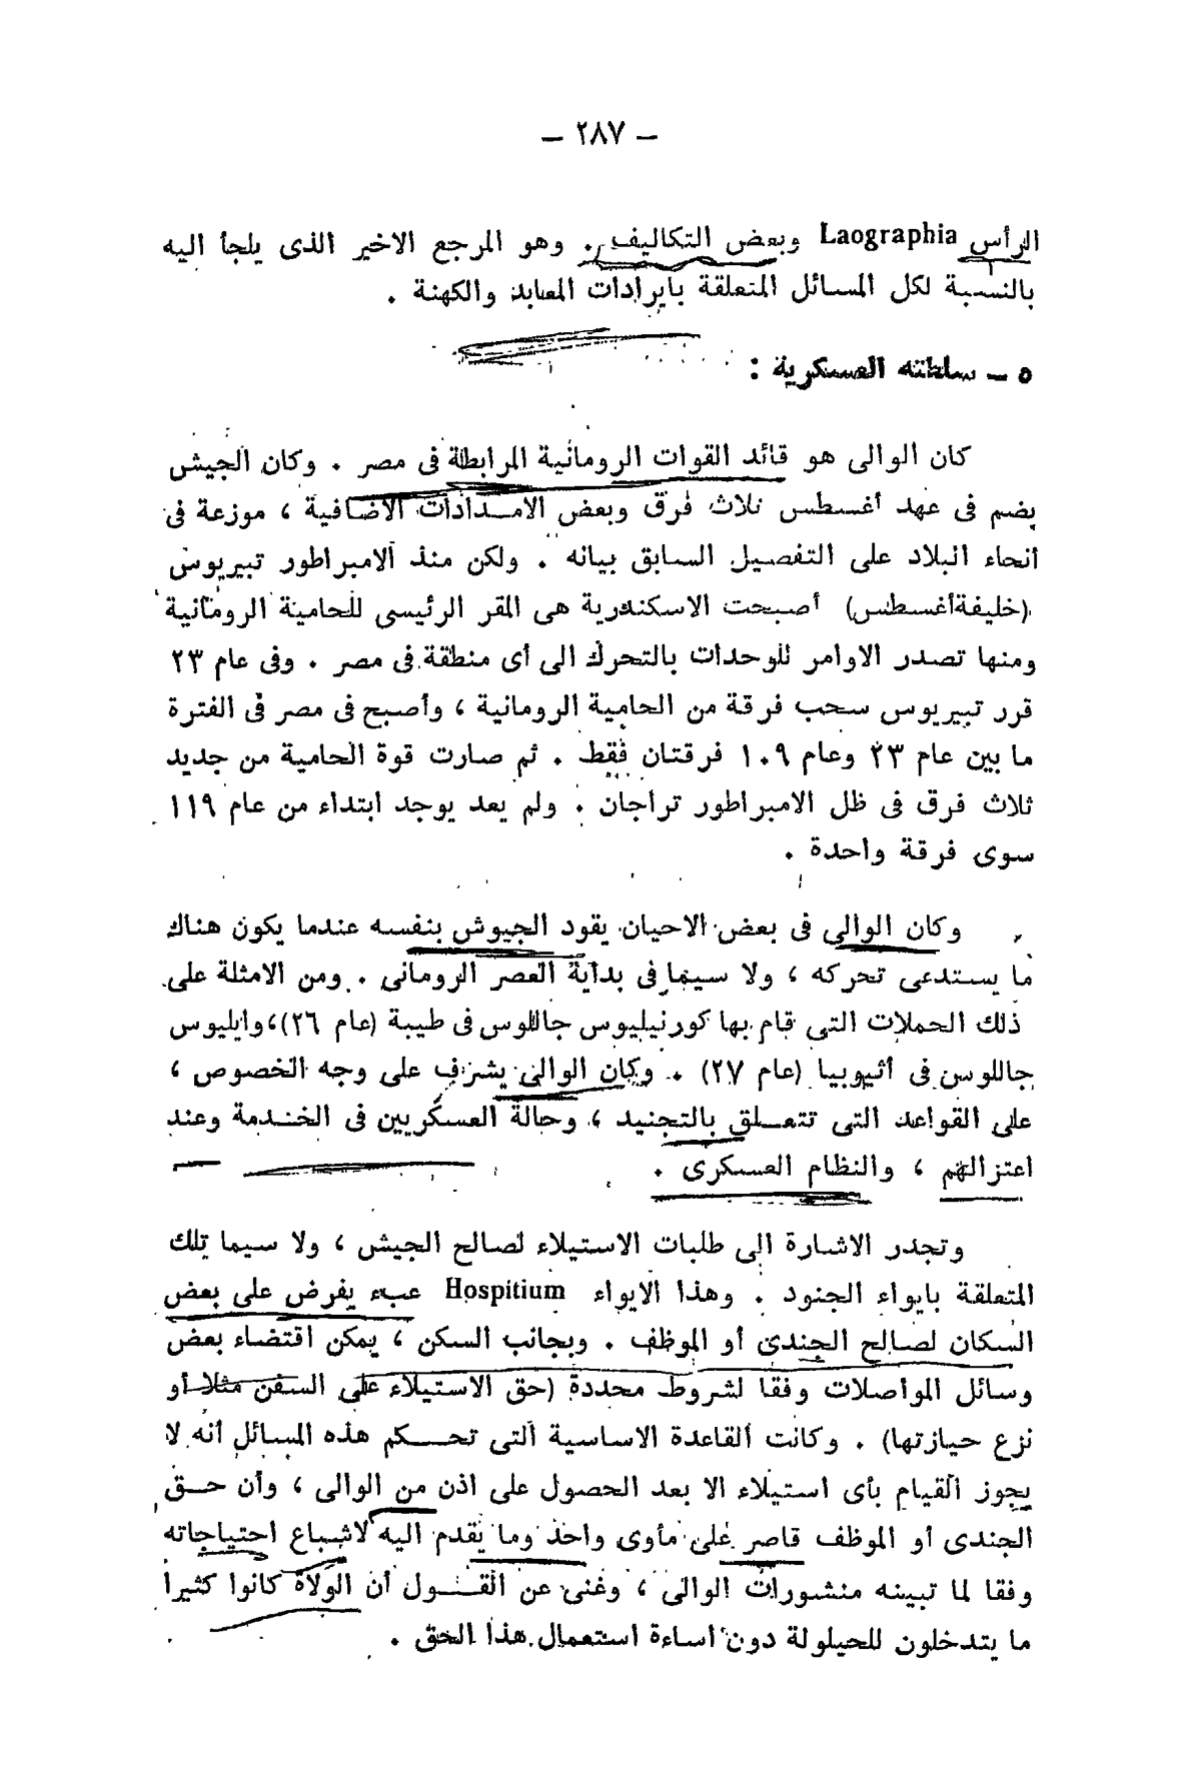 — ٢٨٧ —
الرأس Laographia وبعض التكاليف . وهو المرجع الاخير الذى يلجأ اليه
بالنسبة لكل المسائل المتعلقة بايرادات المعابد والكهنة .
٥ — سلطته العسكرية :
كان الوالى هو قائد القوات الرومانية المرابطة فى مصر . وكان الجيش
يضم فى عهد أغسطس ثلاث فرق وبعض الامدادات الاضافية ، موزعة فى
أنحاء البلاد على التفصيل السابق بيانه . ولكن منذ الامبراطور تبيريوس
(خليفة أغسطس) أصبحت الاسكندرية هى المقر الرئيسى للحامية الرومانية
ومنها تصدر الاوامر للوحدات بالتحرك الى أى منطقة فى مصر . وفى عام ٢٣
قرر تبيريوس سحب فرقة من الحامية الرومانية ، وأصبح فى مصر فى الفترة
ما بين عام ٢٣ وعام ١٠٩ فرقتان فقط . ثم صارت قوة الحامية من جديد
ثلاث فرق فى ظل الامبراطور تراجان . ولم يعد يوجد ابتداء من عام ١١٩
سوى فرقة واحدة .
وكان الوالى فى بعض الاحيان يقود الجيوش بنفسه عندما يكون هناك
ما يستدعى تحركه ، ولا سيما فى بداية العصر الرومانى . ومن الامثلة على
ذلك الحملات التى قام بها كورنيليوس جاللوس فى طيبة (عام ٢٦)، وايليوس
جاللوس فى أثيوبيا (عام ٢٧) . وكان الوالى يشرف على وجه الخصوص ،
على القواعد التى تتعلق بالتجنيد ، وحالة العسكريين فى الخدمة وعند
اعتزالهم ، والنظام العسكرى .
وتجدر الاشارة الى طلبات الاستيلاء لصالح الجيش ، ولا سيما تلك
المتعلقة بايواء الجنود . وهذا الايواء Hospitium عبء يفرض على بعض
السكان لصالح الجندى أو الموظف . وبجانب السكن ، يمكن اقتضاء بعض
وسائل المواصلات وفقا لشروط محددة (حق الاستيلاء على السفن مثلا أو
نزع حيازتها) . وكانت القاعدة الاساسية التى تحكم هذه المسائل أنه لا
يجوز القيام بأى استيلاء الا بعد الحصول على اذن من الوالى ، وأن حق
الجندى أو الموظف قاصر على مأوى واحد وما يقدم اليه لاشباع احتياجاته
وفقا لما تبينه منشورات الوالى ، وغنى عن القول أن الولاة كانوا كثيرا
ما يتدخلون للحيلولة دون اساءة استعمال هذا الحق .